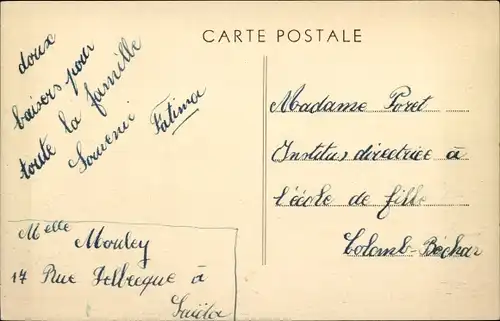 CARTE POSTALE
doux
baisers pour
toute la famille
Souvenir Fatima
Madame Poret
Institus directrice à
l'école de fille
Colomb-Béchar
Melle Mouley
17 Rue à
Saïda